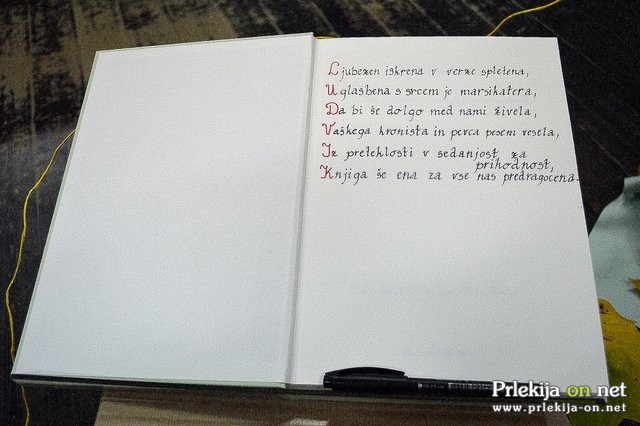 Ljubezen iskrena v verze spletena,
Uglasbena s srcem je marsikatera,
Da bi še dolgo med nami živela,
Vaškega kronista in pevca pesem vesela,
Iz preteklosti v sedanjost za
prihodnost,
Knjiga še ena za vse nas predragocena.
Prlekija on net
www.prlekija-on.net